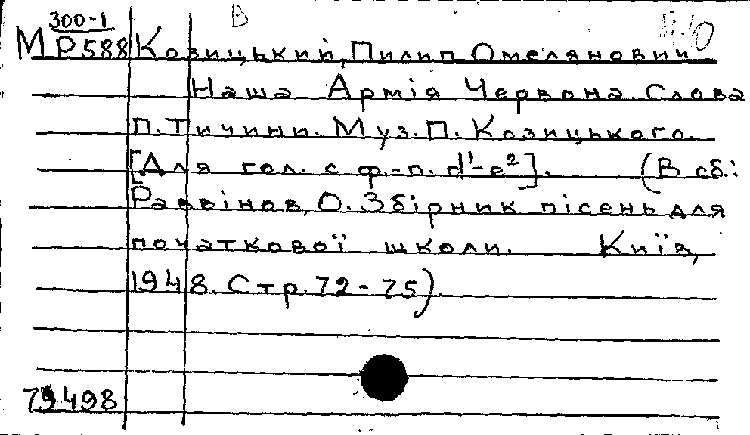 В
300-1
М Р588 Козицький, Пилип Омелянович
Наша Армія Червона. Слова
П. Тичини. Муз. П. Козицького.
[Для гол. с ф.-п. d¹-e²]. (В сб.:
Раввінов, О. Збірник пісень для
початкової школи. Київ,
1948. Стр. 72-75)
79498